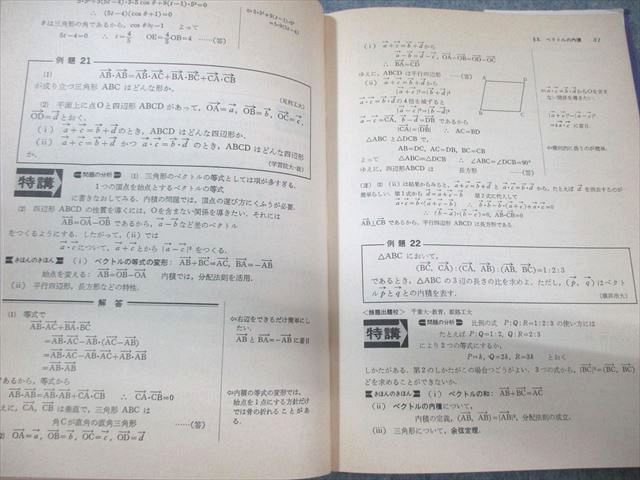 θは三角形の角であるから, cosθ≠-1 よって
5t-4=0 ∴ t=4/5 OE=4/5OB=4 ……(答)
例題 21
(1) AB·AB=AB·AC+BA·BC+CA·CB
が成り立つ三角形 ABC はどんな形か.
(2) 平面上に点Oと四辺形 ABCD があって, OA=a, OB=b, OC=c,
OD=d とおく.
(i) a+c=b+d のとき, ABCD はどんな四辺形か.
(ii) a+c=b+d かつ a·c=b·d のとき, ABCD はどんな四辺形
か.
(学習院大-数)
特講
問題の分析
(1) 三角形のベクトルの等式としては項が多すぎる.
1つの頂点を始点とするベクトルの等式
に書きなおしてみる. 内積の問題では, 頂点の選び方にくふうが必要.
(2) 四辺形 ABCD の性質を導くには, Oを含まない関係を導きたい. それには
AB=OA-OB であるから, a-b など差のベクトル
をつくるようにする. したがって, (ii) では
a·c について, a+c とから |a-c|² をつくる.
きほんのきほん (i) ベクトルの等式の変形: AB+BC=AC, BA=-AB
始点を変える: AB=OB-OA 内積では, 分配法則を活用.
(ii) 平行四辺形, 長方形などの特性.
解答
(1) 等式で
AB·AC+BA·BC
=AB·AC-AB·(AC-AB)
=AB·AC-AB·AC+AB·AB
=AB·AB
であるから, 等式から
AB·AB=AB·AB+CA·CB ∴ CA·CB=0
CA, CB は垂直で, 三角形 ABC は
角Cが直角の直角三角形 ……(答)
OA=a, OB=b, OC=c, OD=d
⇦右辺をできるだけ簡単にし
たい.
AB と BA=-AB に着目
⇦内積の等式の変形では,
始点を1点にする方針だけ
では骨の折れることがあ
る.
§3. ベクトルの内積 37
(i) a+c=b+d から
a-b=d-c, OA-OB=OD-OC
∴ BA=CD
ゆえに, ABCD は平行四辺形 ……(答)
(ii) a+c=b+d から
|a+c|²=|b+d|²
a·c=b·d の4倍を減ずると
|a-c|²=|b-d|²
a-c=CA, b-d=DB であるから
|CA|=|DB| ∴ AC=BD
△ABC と △DCB で,
AB=DC, AC=DB, BC=CB
よって △ABC≡△DCB ∴ ∠ABC=∠DCB=90°
ゆえに, 四辺形ABCD は 長方形 ……(答)
A
D
B
C
AB⊥CB であるから, 平行四辺形 ABCD は長方形である.
例題 22
△ABC において,
(BC, CA):(CA, AB):(AB, BC)=1:2:3
であるとき, △ABC の3辺の長さの比を求めよ. ただし, (p, q) はベクト
ル p と q との内積を表す.
(横浜市大)
<類題出題校> 千葉大-教育, 姫路工大
特講
問題の分析
比例の式 P:Q:R=1:2:3 の使い方には
たとえば P:Q=1:2, Q:R=2:3
により2つの等式にするか,
P=k, Q=2k, R=3k とおく
しかたがある. 第2のしかたがこの場合つごうがよい. 3つの式から, |BC|²=(BC, BC)
などを求めることができないか.
きほんのきほん (i) ベクトルの和: AB+BC=AC
(ii) ベクトルの内積について,
内積の定義, (AB, AB)=|AB|², 分配法則の成立.
(iii) 三角形について, 余弦定理.